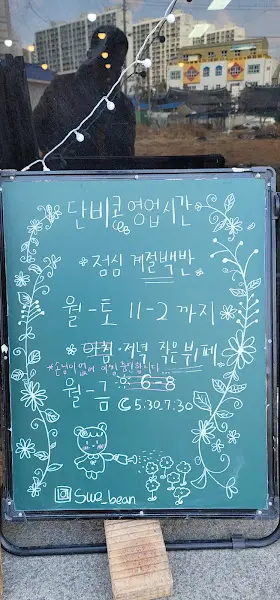 단비콩 영업시간
점심 계절백반
월-토 11-2 까지
아침·저녁 작은뷔페
*손님이 없어 아침 중단합니다...
월-금 6-8
5:30-7:30
swe_bean